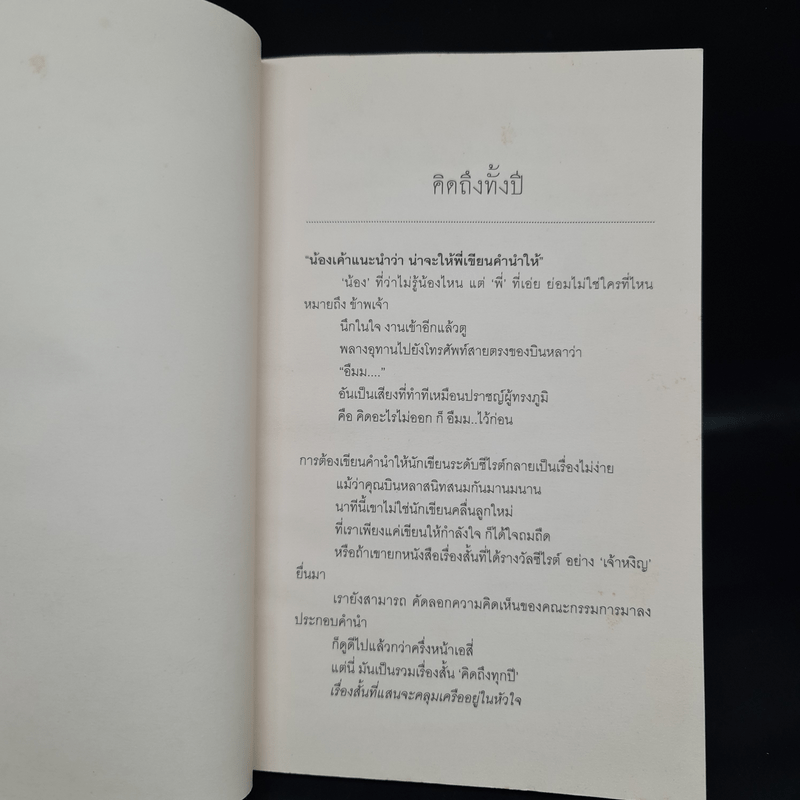 คิดถึงทั้งปี
"น้องเค้าแนะนำว่า น่าจะให้พี่เขียนคำนำให้"
'น้อง' ที่ว่าไม่รู้น้องไหน แต่ 'พี่' ที่เอ่ย ย่อมไม่ใช่ใครที่ไหน
หมายถึง ข้าพเจ้า
นึกในใจ งานเข้าอีกแล้วตู
พลางอุทานไปยังโทรศัพท์สายตรงของบินหลาว่า
"อืมม...."
อันเป็นเสียงที่ทำทีเหมือนปราชญ์ผู้ทรงภูมิ
คือ คิดอะไรไม่ออก ก็ อืมม..ไว้ก่อน
การต้องเขียนคำนำให้นักเขียนระดับซีไรต์กลายเป็นเรื่องไม่ง่าย
แม้ว่าคุณบินหลาสนิทสนมกันมานมนาน
นาทีนี้เขาไม่ใช่นักเขียนคลื่นลูกใหม่
ที่เราเพียงแค่เขียนให้กำลังใจ ก็ได้ใจถมถืด
หรือถ้าเขายกหนังสือเรื่องสั้นที่ได้รางวัลซีไรต์ อย่าง 'เจ้าหงิญ'
ยื่นมา
เรายังสามารถ คัดลอกความคิดเห็นของคณะกรรมการมาลง
ประกอบคำนำ
ก็ดูดีไปแล้วกว่าครึ่งหน้าเอสี่
แต่นี่ มันเป็นรวมเรื่องสั้น 'คิดถึงทุกปี'
เรื่องสั้นที่แสนจะคลุมเครืออยู่ในหัวใจ